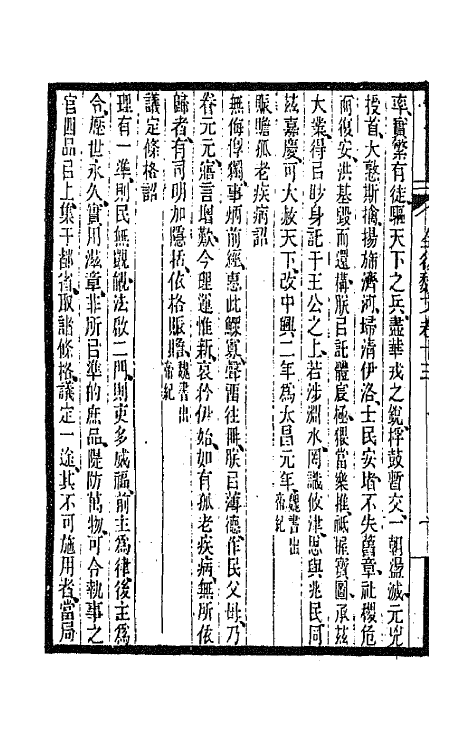 率實繁有徒驅天下之兵盡華戎之銳桴鼓暫交一朝盪滅元兇
授首大憝斯擒揚旆濟河埽清伊洛士民安堵不失舊章社稷危
而復安洪基毀而還構朕㠯託體宸極猥當樂推祗握寶圖承茲
大業得㠯眇身託于王公之上若涉淵水罔識攸津思與兆民同
茲嘉慶可大赦天下改中興二年爲太昌元年魏書出帝紀
賑贍孤老疾病詔
無侮惸獨事炳前經惠此鰥寡聲畱往冊朕㠯薄德作民父母乃
眷元元寤言增歎今理運惟新哀矜伊始如有孤老疾病無所依
歸者有司明加隱括依格賑贍魏書出帝紀
議定條格詔
理有一準則民無覬覦法啟二門則吏多威福前主爲律後主爲
令歷世永久實用滋章非所㠯準的庶品隄防萬物可令執事之
官四品㠯上集于都省取諸條格議定一途其不可施用者當局
全後魏文卷十三